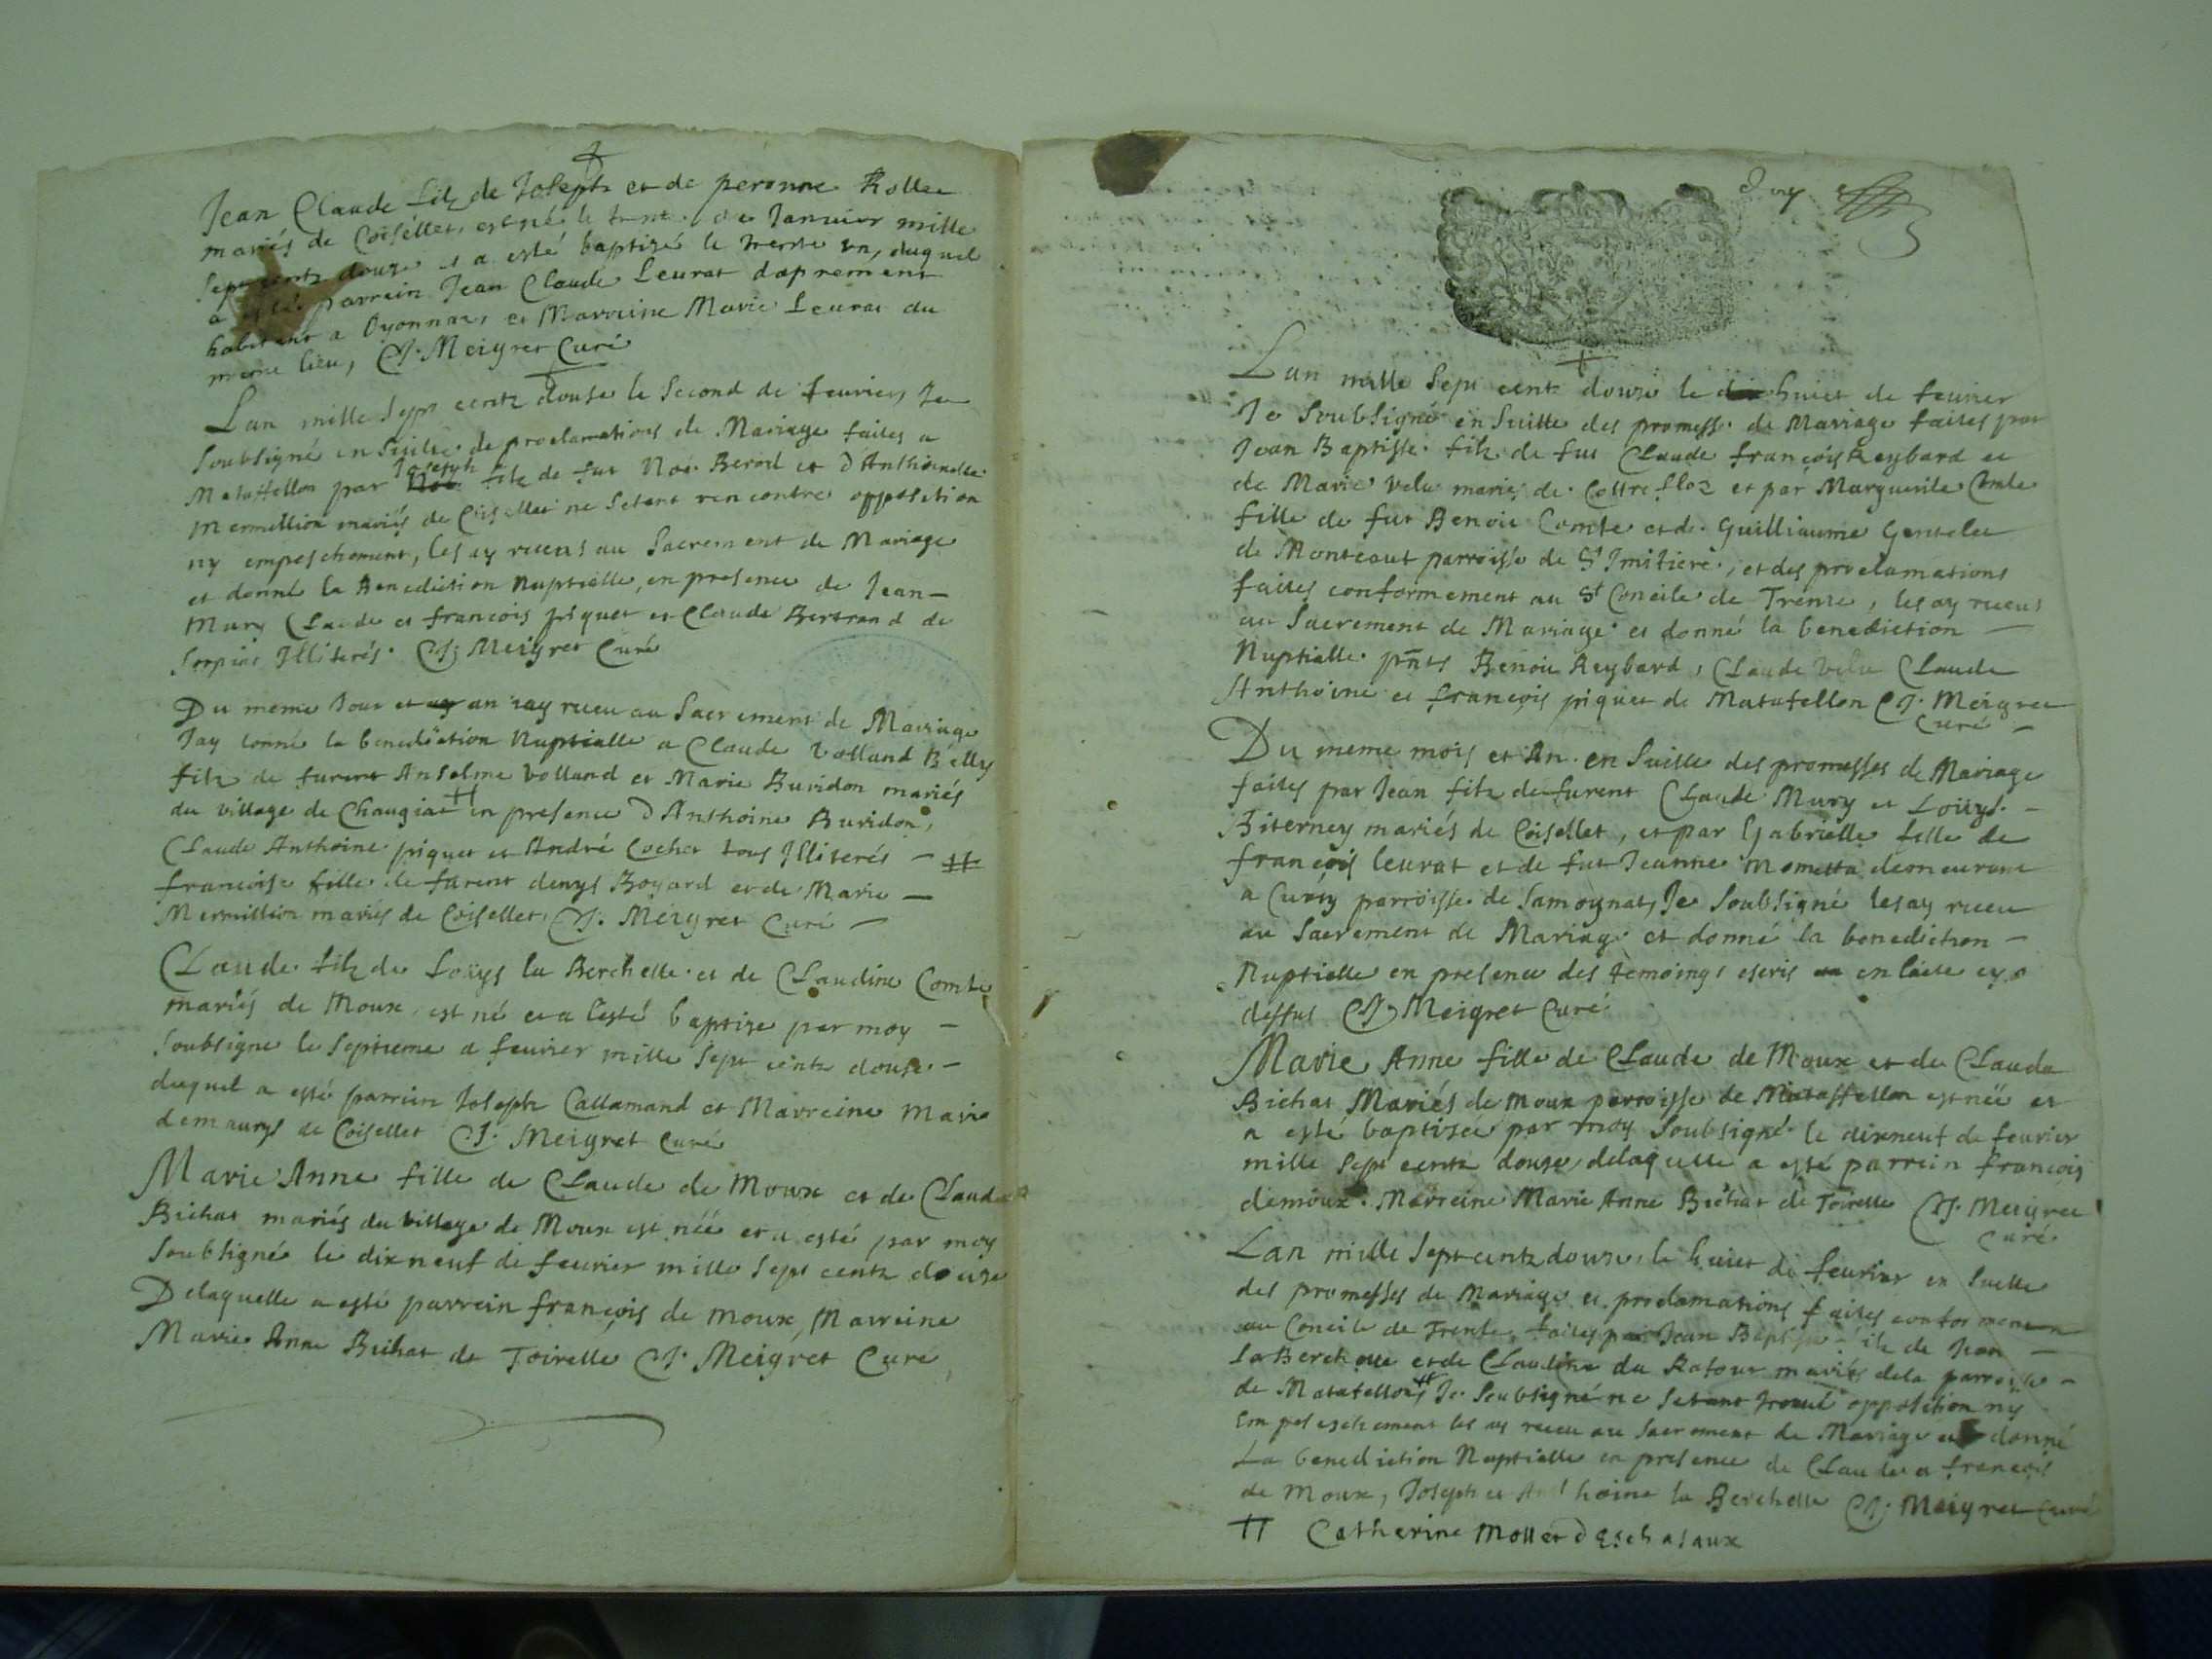 Jean Claude filz de Joseph et de peronne Rollee
mariés de Coisellet, est né le trente de Janvier mille
sept centz douze et a esté baptizé le trente un, duquel
a esté parrein Jean Claude Leurat dapremont
habitant a Oyonnax, et Marreine Marie Leurat du
meme lieu, CJ. Meigret Curé
Lan mille sept centz douse le second de feurier, Je
soubsigné en suitte de proclamations de Mariage faites a
Mataffellon par Joseph filz de fut Noé Berod et d'Anthoinette
Mermillion mariés de Coisellet ne setant rencontre opposition
ny empeschement, les ay receus au Sacrement de Mariage
et donné la Benediction Nuptialle, en presence de Jean
Mury Claude et francois piquet et Claude Bertrand de
Illiterés. CJ. Meigret Curé
Du meme Jour et an iay receu au Sacrement de Mariage
Jay donné la benediction Nuptialle a Claude Volland Belly
filz de furent Anselme Volland et Marie Buridon mariés
du village de Chaugiat # en presence d'Anthoine Buridon,
Claude Anthoine piquet et André Cochet tous Illiterés - #
francoise fille de furent denys Boyard et de Marie -
Mermillion mariés de Coisellet, CJ. Meigret Curé -
Claude filz de Loüys la Berchette et de Claudine Comte
mariés de Moux, est né et a esté baptize par moy -
soubsigne le septieme a feurier mille sept centz douse -
duquel a esté parrein Joseph Callamand et Marreine Marie
demaurys de Coisellet CJ. Meigret Curé
Marie Anne fille de Claude de Moux et de Clauda
Bichat mariés du village de Moux est née et a esté par moy
soubsigné le dixneuf de feurier mille sept centz douze
Delaquelle a esté parrein françois de moux, Marreine
Marie Anne Bichat de Toirette CJ. Meigret Curé
Lan mille sept centz douze le huict de feurier
Je soubsigné en suitte des promess. de Mariage faites par
Jean Baptiste filz de fut Claude françois Reybard et
de Marie Velu mariés de et par Marguerite Comte
fille de fut Benoit Comte et de Guilliaume Gentelet
de Montcaut parroisse de St Imitiere, et des proclamations
faites conformement au St Concile de Trente, les ay receus
au Sacrement de Mariage et donné la benediction -
Nuptialle pnts Benoit Reybard, Claude Velu Claude
Anthoine et françois piquet de Matafellon CJ. Meigret
Curé -
Du meme mois et An en suitte des promesses de Mariage
faites par Jean filz de furent Claude Mury et Louyse -
Biterney mariés de Coisellet, et par Gabrielle fille de
françois leurat et de fut Jeanne Mometta demeurant
a parroisse de Samoynat, Je soubsigné les ay receu
au Sacrement de Mariage et donné la benediction -
Nuptialle en presence des temoings escris en lacte cy
dessus CJ Meigret Curé
Marie Anne fille de Claude de Moux et de Clauda
Bichat Mariés de moux parroisse de Mataffellon est née et
a esté baptisée par moy soubsigné le dixneuf de feurier
mille sept centz douze, delaquelle a esté parrein françois
demoux. Marreine Marie Anne Bichat de Toirette CJ. Meigret
Curé
Lan mille sept centz douze, le huict de feurier en suitte
des promesses de Mariage et proclamations faites conformement
au Concile de Trente, faites par Jean Baptiste filz de Jean -
la Berchette et de Claudine du Ratour mariés dela parroisse -
de Matafellon # Je soubsigné ne setant trouué opposition ny
empeschement les ay receu au Sacrement de Mariage et donné
La benediction Nuptialle en presence de Claude et françois
de Moux, Joseph et Anthoine la Berchette CJ. Meigret Curé
# Catherine Mollet d'Eschasaux